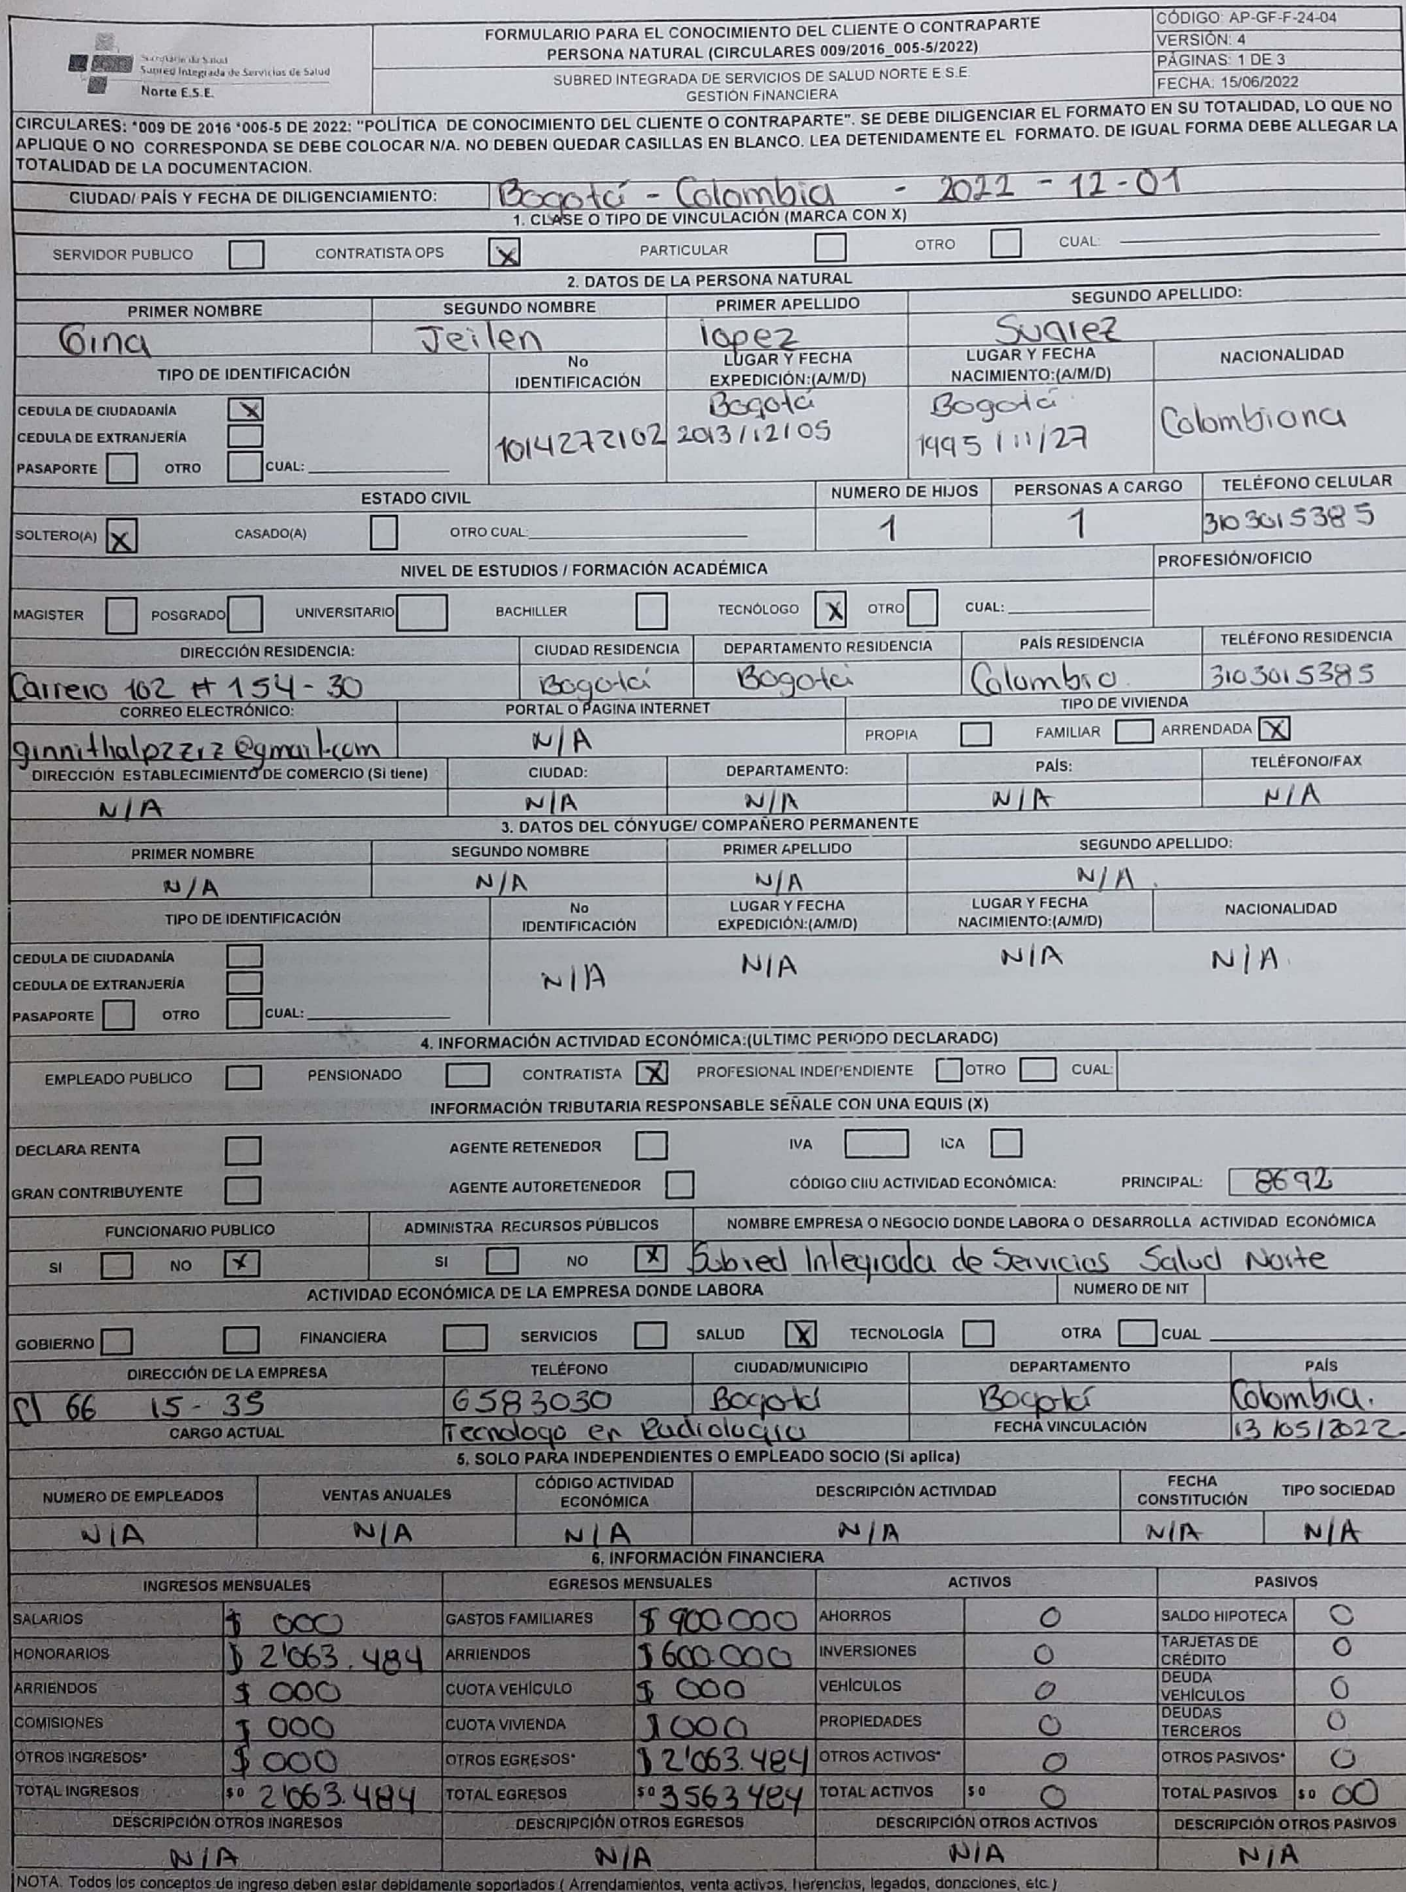 Secretaría de Salud
Subred Integrada de Servicios de Salud
Norte E.S.E.
FORMULARIO PARA EL CONOCIMIENTO DEL CLIENTE O CONTRAPARTE
PERSONA NATURAL (CIRCULARES 009/2016_005-5/2022)
SUBRED INTEGRADA DE SERVICIOS DE SALUD NORTE E.S.E.
GESTIÓN FINANCIERA
CÓDIGO: AP-GF-F-24-04
VERSIÓN: 4
PÁGINAS: 1 DE 3
FECHA: 15/06/2022
CIRCULARES: *009 DE 2016 *005-5 DE 2022: "POLÍTICA DE CONOCIMIENTO DEL CLIENTE O CONTRAPARTE". SE DEBE DILIGENCIAR EL FORMATO EN SU TOTALIDAD, LO QUE NO
APLIQUE O NO CORRESPONDA SE DEBE COLOCAR N/A. NO DEBEN QUEDAR CASILLAS EN BLANCO. LEA DETENIDAMENTE EL FORMATO. DE IGUAL FORMA DEBE ALLEGAR LA
TOTALIDAD DE LA DOCUMENTACION.
CIUDAD/ PAÍS Y FECHA DE DILIGENCIAMIENTO: Bogotá - Colombia - 2022 - 12-01
1. CLASE O TIPO DE VINCULACIÓN (MARCA CON X)
SERVIDOR PUBLICO CONTRATISTA OPS X PARTICULAR OTRO CUAL:
2. DATOS DE LA PERSONA NATURAL
PRIMER NOMBRE SEGUNDO NOMBRE PRIMER APELLIDO SEGUNDO APELLIDO:
Gina Jeilen lopez Suarez
TIPO DE IDENTIFICACIÓN No IDENTIFICACIÓN LUGAR Y FECHA EXPEDICIÓN:(A/M/D) LUGAR Y FECHA NACIMIENTO:(A/M/D) NACIONALIDAD
CEDULA DE CIUDADANÍA X Bogotá Bogotá Colombiana
CEDULA DE EXTRANJERÍA 1014272102 2013/12/05 1995/11/27
PASAPORTE OTRO CUAL:
ESTADO CIVIL NUMERO DE HIJOS PERSONAS A CARGO TELÉFONO CELULAR
SOLTERO(A) X CASADO(A) OTRO CUAL: 1 1 3103015385
NIVEL DE ESTUDIOS / FORMACIÓN ACADÉMICA PROFESIÓN/OFICIO
MAGISTER POSGRADO UNIVERSITARIO BACHILLER TECNÓLOGO X OTRO CUAL:
DIRECCIÓN RESIDENCIA: CIUDAD RESIDENCIA DEPARTAMENTO RESIDENCIA PAÍS RESIDENCIA TELÉFONO RESIDENCIA
Carrera 102 # 154-30 Bogotá Bogotá Colombia 3103015385
CORREO ELECTRÓNICO: PORTAL O PAGINA INTERNET TIPO DE VIVIENDA
ginnithalpzzrz@gmail.com N/A PROPIA FAMILIAR ARRENDADA X
DIRECCIÓN ESTABLECIMIENTO DE COMERCIO (Si tiene) CIUDAD: DEPARTAMENTO: PAÍS: TELÉFONO/FAX
N/A N/A N/A N/A N/A
3. DATOS DEL CÓNYUGE/ COMPAÑERO PERMANENTE
PRIMER NOMBRE SEGUNDO NOMBRE PRIMER APELLIDO SEGUNDO APELLIDO:
N/A N/A N/A N/A
TIPO DE IDENTIFICACIÓN No IDENTIFICACIÓN LUGAR Y FECHA EXPEDICIÓN:(A/M/D) LUGAR Y FECHA NACIMIENTO:(A/M/D) NACIONALIDAD
CEDULA DE CIUDADANÍA N/A N/A N/A N/A
CEDULA DE EXTRANJERÍA
PASAPORTE OTRO CUAL:
4. INFORMACIÓN ACTIVIDAD ECONÓMICA:(ULTIMO PERIODO DECLARADO)
EMPLEADO PUBLICO PENSIONADO CONTRATISTA X PROFESIONAL INDEPENDIENTE OTRO CUAL:
INFORMACIÓN TRIBUTARIA RESPONSABLE SEÑALE CON UNA EQUIS (X)
DECLARA RENTA AGENTE RETENEDOR IVA ICA
GRAN CONTRIBUYENTE AGENTE AUTORETENEDOR CÓDIGO CIIU ACTIVIDAD ECONÓMICA: PRINCIPAL: 8692
FUNCIONARIO PÚBLICO ADMINISTRA RECURSOS PÚBLICOS NOMBRE EMPRESA O NEGOCIO DONDE LABORA O DESARROLLA ACTIVIDAD ECONÓMICA
SI NO X SI NO X Subred Integrada de Servicios Salud Norte
ACTIVIDAD ECONÓMICA DE LA EMPRESA DONDE LABORA NUMERO DE NIT
GOBIERNO FINANCIERA SERVICIOS SALUD X TECNOLOGÍA OTRA CUAL
DIRECCIÓN DE LA EMPRESA TELÉFONO CIUDAD/MUNICIPIO DEPARTAMENTO PAÍS
Cl 66 15-35 6583030 Bogotá Bogotá Colombia.
CARGO ACTUAL Tecnologo en Radiologia FECHA VINCULACIÓN 13/05/2022
5. SOLO PARA INDEPENDIENTES O EMPLEADO SOCIO (Si aplica)
NUMERO DE EMPLEADOS VENTAS ANUALES CÓDIGO ACTIVIDAD ECONÓMICA DESCRIPCIÓN ACTIVIDAD FECHA CONSTITUCIÓN TIPO SOCIEDAD
N/A N/A N/A N/A N/A N/A
6. INFORMACIÓN FINANCIERA
INGRESOS MENSUALES EGRESOS MENSUALES ACTIVOS PASIVOS
SALARIOS $ 000 GASTOS FAMILIARES $ 900.000 AHORROS 0 SALDO HIPOTECA 0
HONORARIOS $ 2'063.484 ARRIENDOS $ 600.000 INVERSIONES 0 TARJETAS DE CRÉDITO 0
ARRIENDOS $ 000 CUOTA VEHÍCULO $ 000 VEHÍCULOS 0 DEUDA VEHÍCULOS 0
COMISIONES $ 000 CUOTA VIVIENDA $ 000 PROPIEDADES 0 DEUDAS TERCEROS 0
OTROS INGRESOS* $ 000 OTROS EGRESOS* $ 2'063.484 OTROS ACTIVOS* 0 OTROS PASIVOS* 0
TOTAL INGRESOS $0 2'063.484 TOTAL EGRESOS $0 3563484 TOTAL ACTIVOS $0 0 TOTAL PASIVOS $0 00
DESCRIPCIÓN OTROS INGRESOS DESCRIPCIÓN OTROS EGRESOS DESCRIPCIÓN OTROS ACTIVOS DESCRIPCIÓN OTROS PASIVOS
N/A N/A N/A N/A
NOTA. Todos los conceptos de ingreso deben estar debidamente soportados ( Arrendamientos, venta activos, herencias, legados, donaciones, etc.)